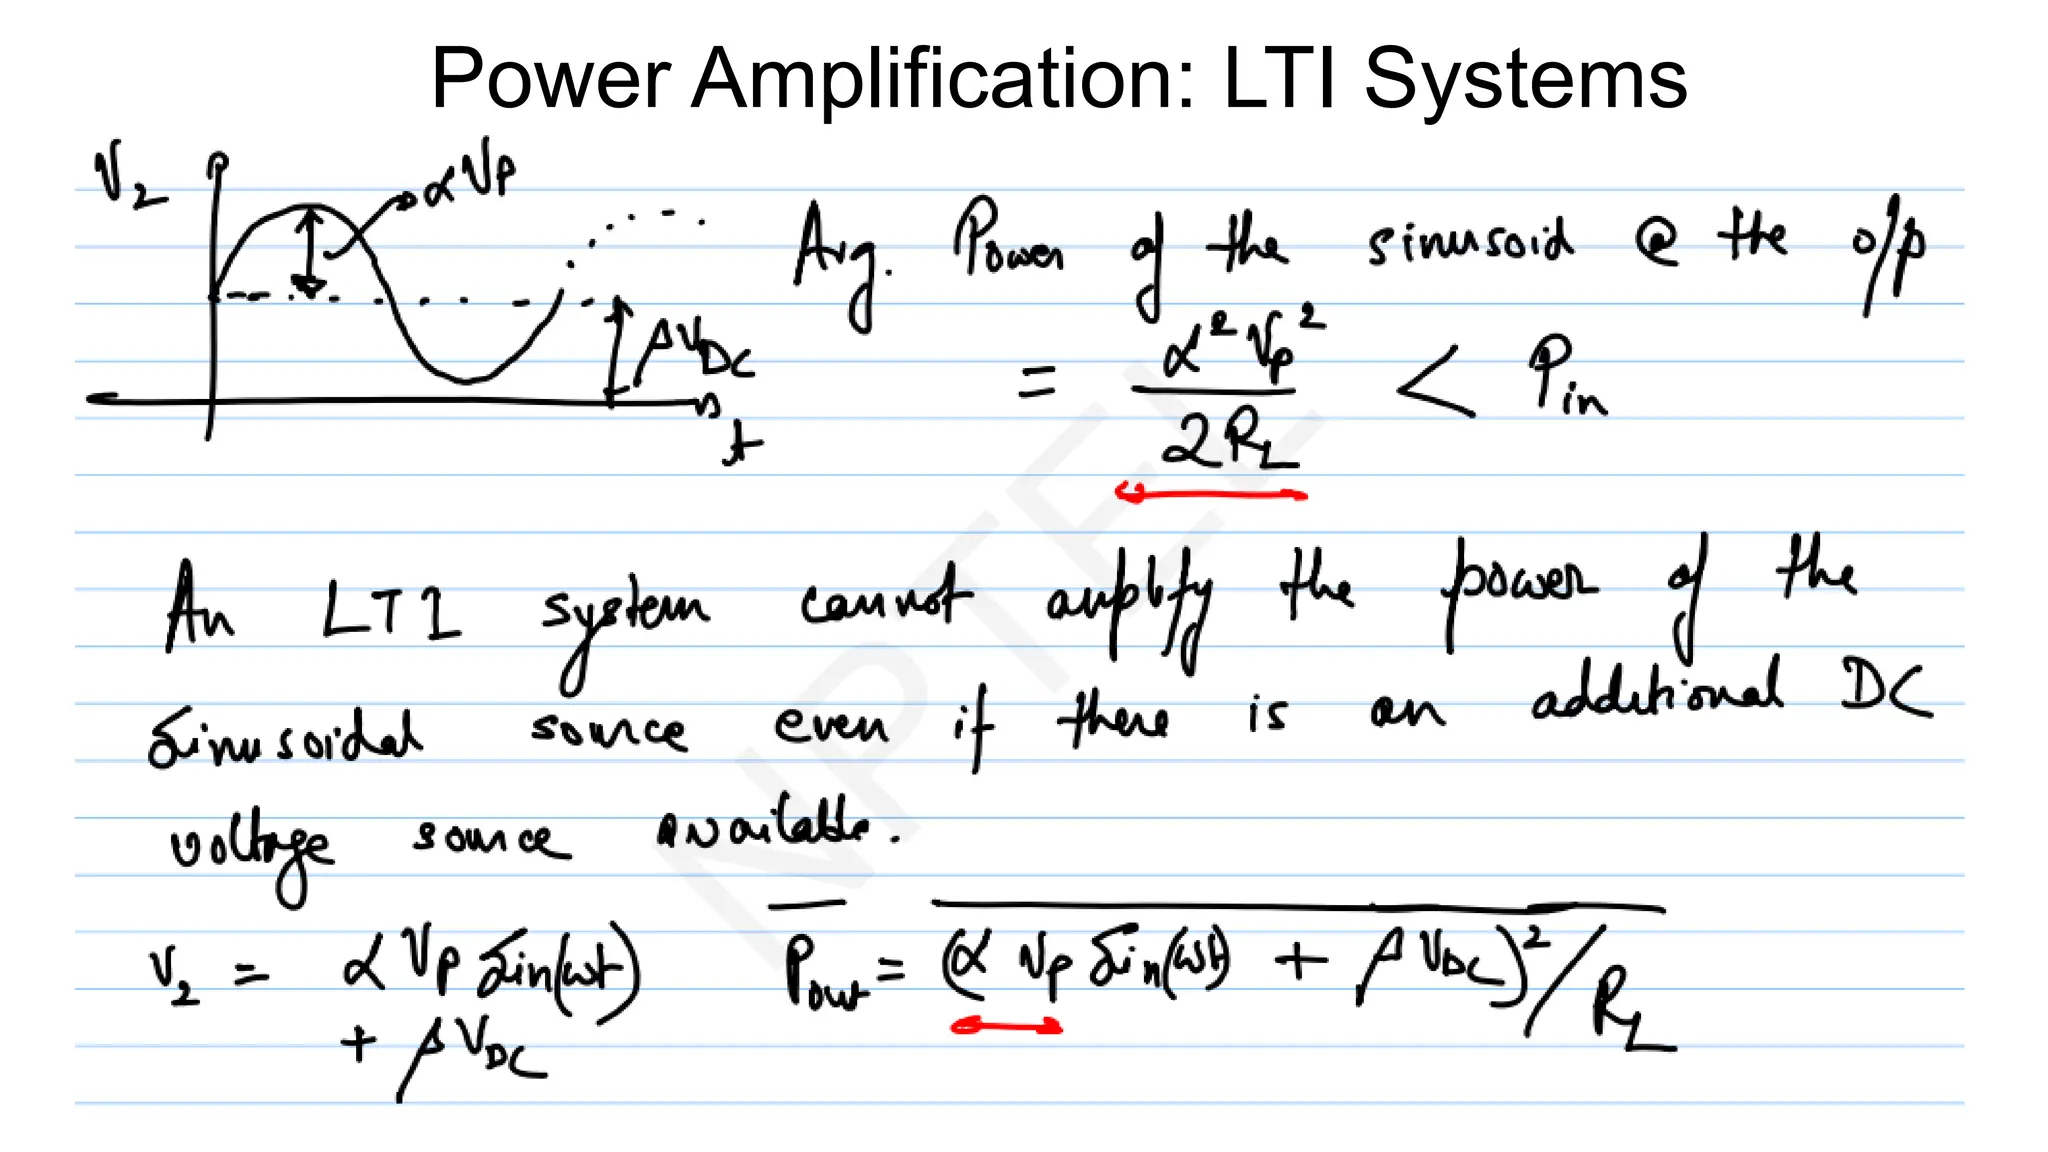 Power Amplification: LTI Systems
V₂
αVp
βV_DC
t
Avg. Power of the sinusoid @ the o/p
= α²Vp² / 2R_L < P_in
An LTI system cannot amplify the power of the
sinusoidal source even if there is an additional DC
voltage source available.
V₂ = αVp sin(ωt) + βV_DC
P_out = (α Vp sin(ωt) + βV_DC)² / R_L
NPTEL